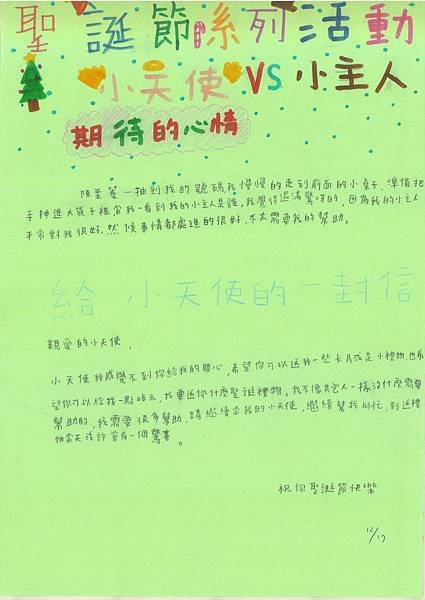 聖誕節系列活動
小天使 VS 小主人
期待的心情
一抽到我的號碼,我慢慢的走到前面的小桌子,準備把
手抻進大袋子裡,當我一看到我的小主人是誰,我覺得還滿驚訝的,因為我的小主人
平常對我很好,然後事情都處理的很好,不太需要我的幫助。
給小天使的一封信
親愛的小天使,
小天使我感覺不到你給我的關心,希望你可以送我一些卡片或是小禮物,也希
望你可以給我一點暗示,我要送你什麼聖誕禮物。我不像其它人一樣沒什麼需要
幫助的,我需要很多幫助,請繼續當我的小天使,繼續幫我的忙,到送禮
物當天或許會有一個驚喜。
祝你聖誕節快樂
12/19